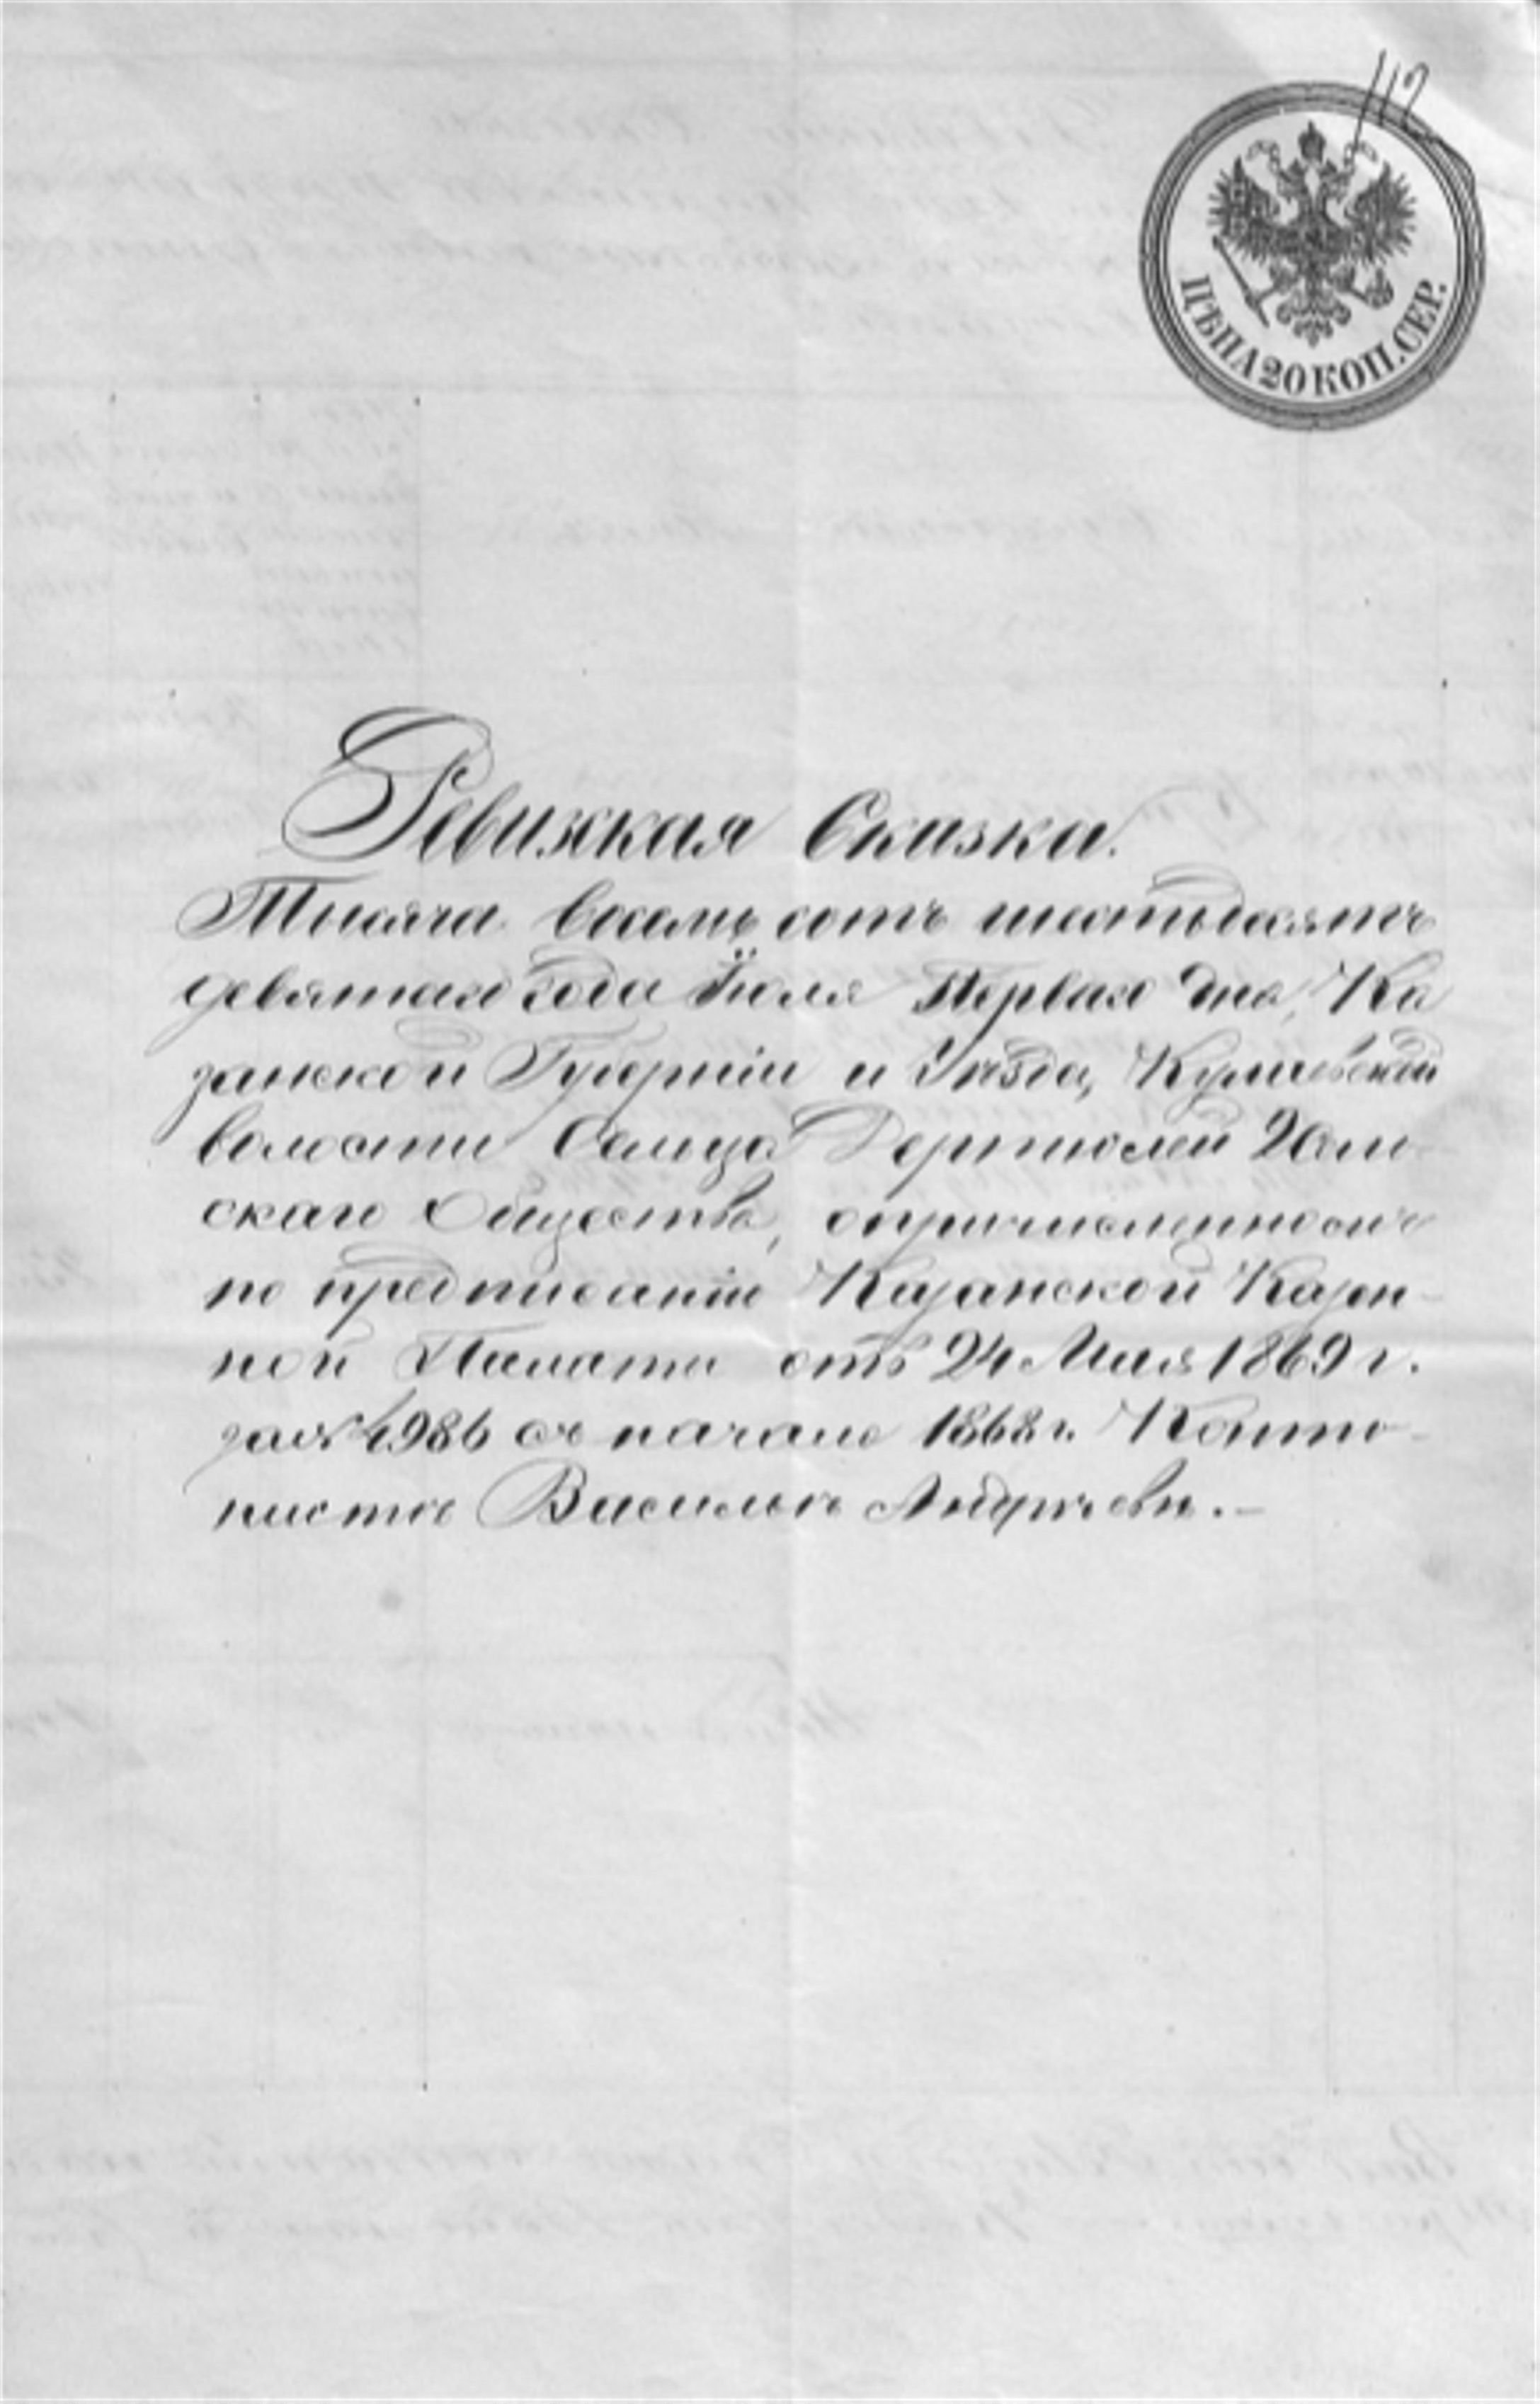 112
ЦѢНА 20 КОП. СЕР.
Ревизская Сказка.
Тысяча восемь сотъ шестьдесятъ
девятаго года Іюля Перваго дня, Ка
занской Губерніи и Уѣзда, Кулаевской
волости Сельца Дертюлей 2<sup>го</sup>
скаго Общества, о причисленномъ
по предписанію Казанской Казен-
ной Палаты отъ 24 Мая 1869 г.
за № 4986 съ начала 1868 г. Канто-
нистѣ Васильѣ Андреевѣ.-